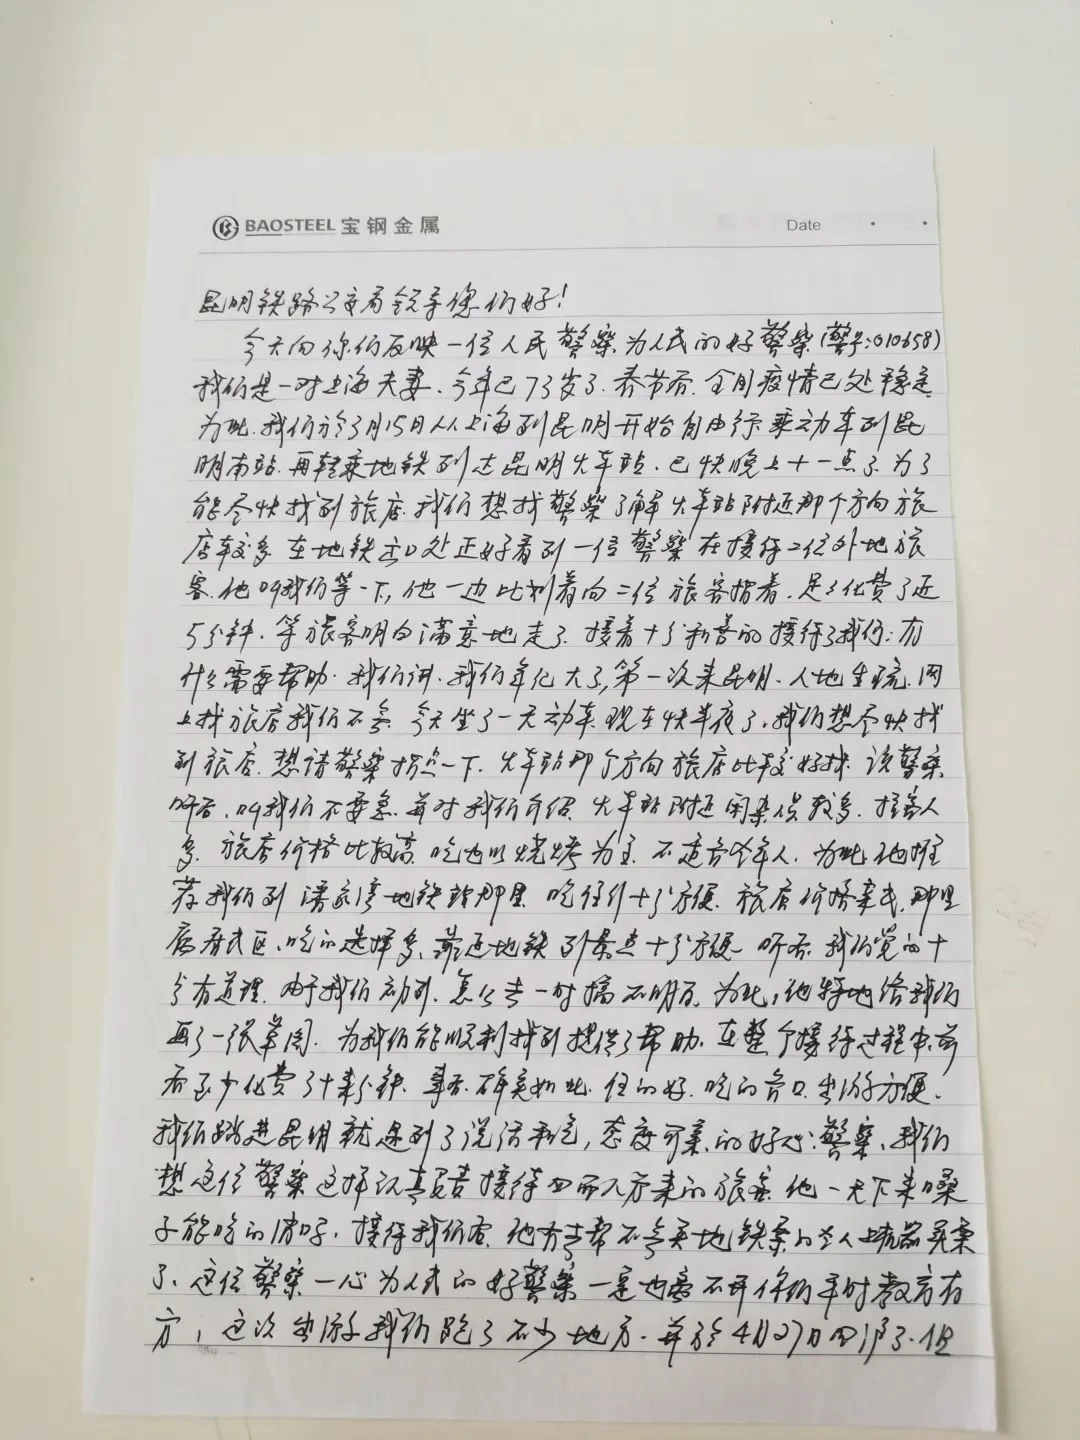 BAOSTEEL 宝钢金属 Date
昆明铁路公安局领导您们好！
今天向你们反映一位人民警察为人民的好警察(警号:010658)
我们是一对上海夫妻.今年已73岁了.春节后.全国疫情已处稳定
为此.我们於3月15日从上海到昆明开始自由行.乘动车到昆
明南站.再转乘地铁到达昆明火车站.已快晚上十一点了.为了
能尽快找到旅店.我们想找警察了解火车站附近那个方向旅
店较多.在地铁出口处正好看到一位警察在接待二位外地旅
客.他叫我们等一下,他一边比划着向二位旅客指着.足足化费了近
5分钟.等旅客明白满意地走了.接着十分和善的接待了我们:有
什么需要帮助.我们讲.我们年纪大了,第一次来昆明.人地生疏.网
上找旅店我们不会.今天坐了一天动车.现在快半夜了.我们想尽快找
到旅店.想请警察指点一下.火车站那个方向旅店比较好找.该警察
听后.叫我们不要急.并对我们介绍.火车站附近闲杂人员较多.拉客人
多.旅店价格比较高.吃也以烧烤为主.不适合老年人.为此他推
荐我们到潘家湾地铁站那里.吃住行十分方便.旅店价格亲民.那里
居民区.吃的选择多.靠近地铁到景点十分方便.听后.我们觉的十
分有道理.由于我们初到.怎么去一时搞不明白.为此,他特地给我们
画了一张草图.为我们能顺利找到提供了帮助.在整个接待过程中.前
后至少化费了十来分钟.事后.确实如此.住的好.吃的合口.出游方便.
我们踏进昆明就遇到了说话和气,态度可亲的好心警察.我们
想这位警察这样认真负责接待四面八方来的旅客.他一天下来嗓
子能吃的消吗.接待我们后.他又去帮不会买地铁票的老人上机器买票
了.这位警察一心为人民的好警察一定也离不开你们平时教育有
方,这次出游我们跑了不少地方.并於4月27日回沪了.但